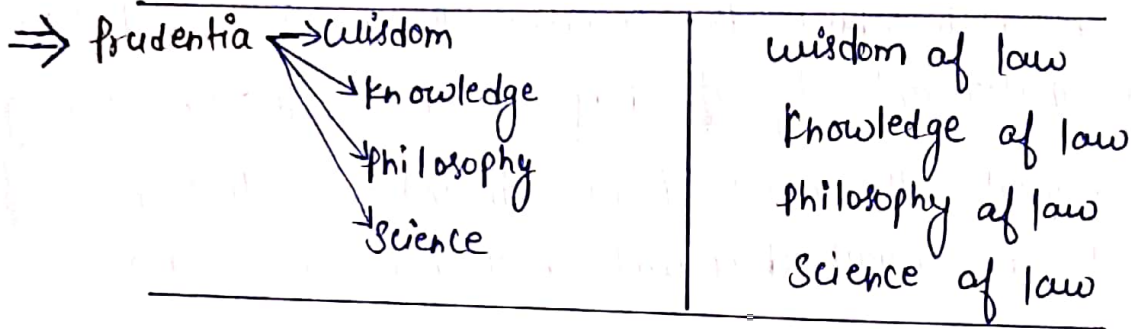 ⇒ Prudentia → Wisdom
Knowledge
Philosophy
Science
Wisdom of law
Knowledge of law
Philosophy of law
Science of law